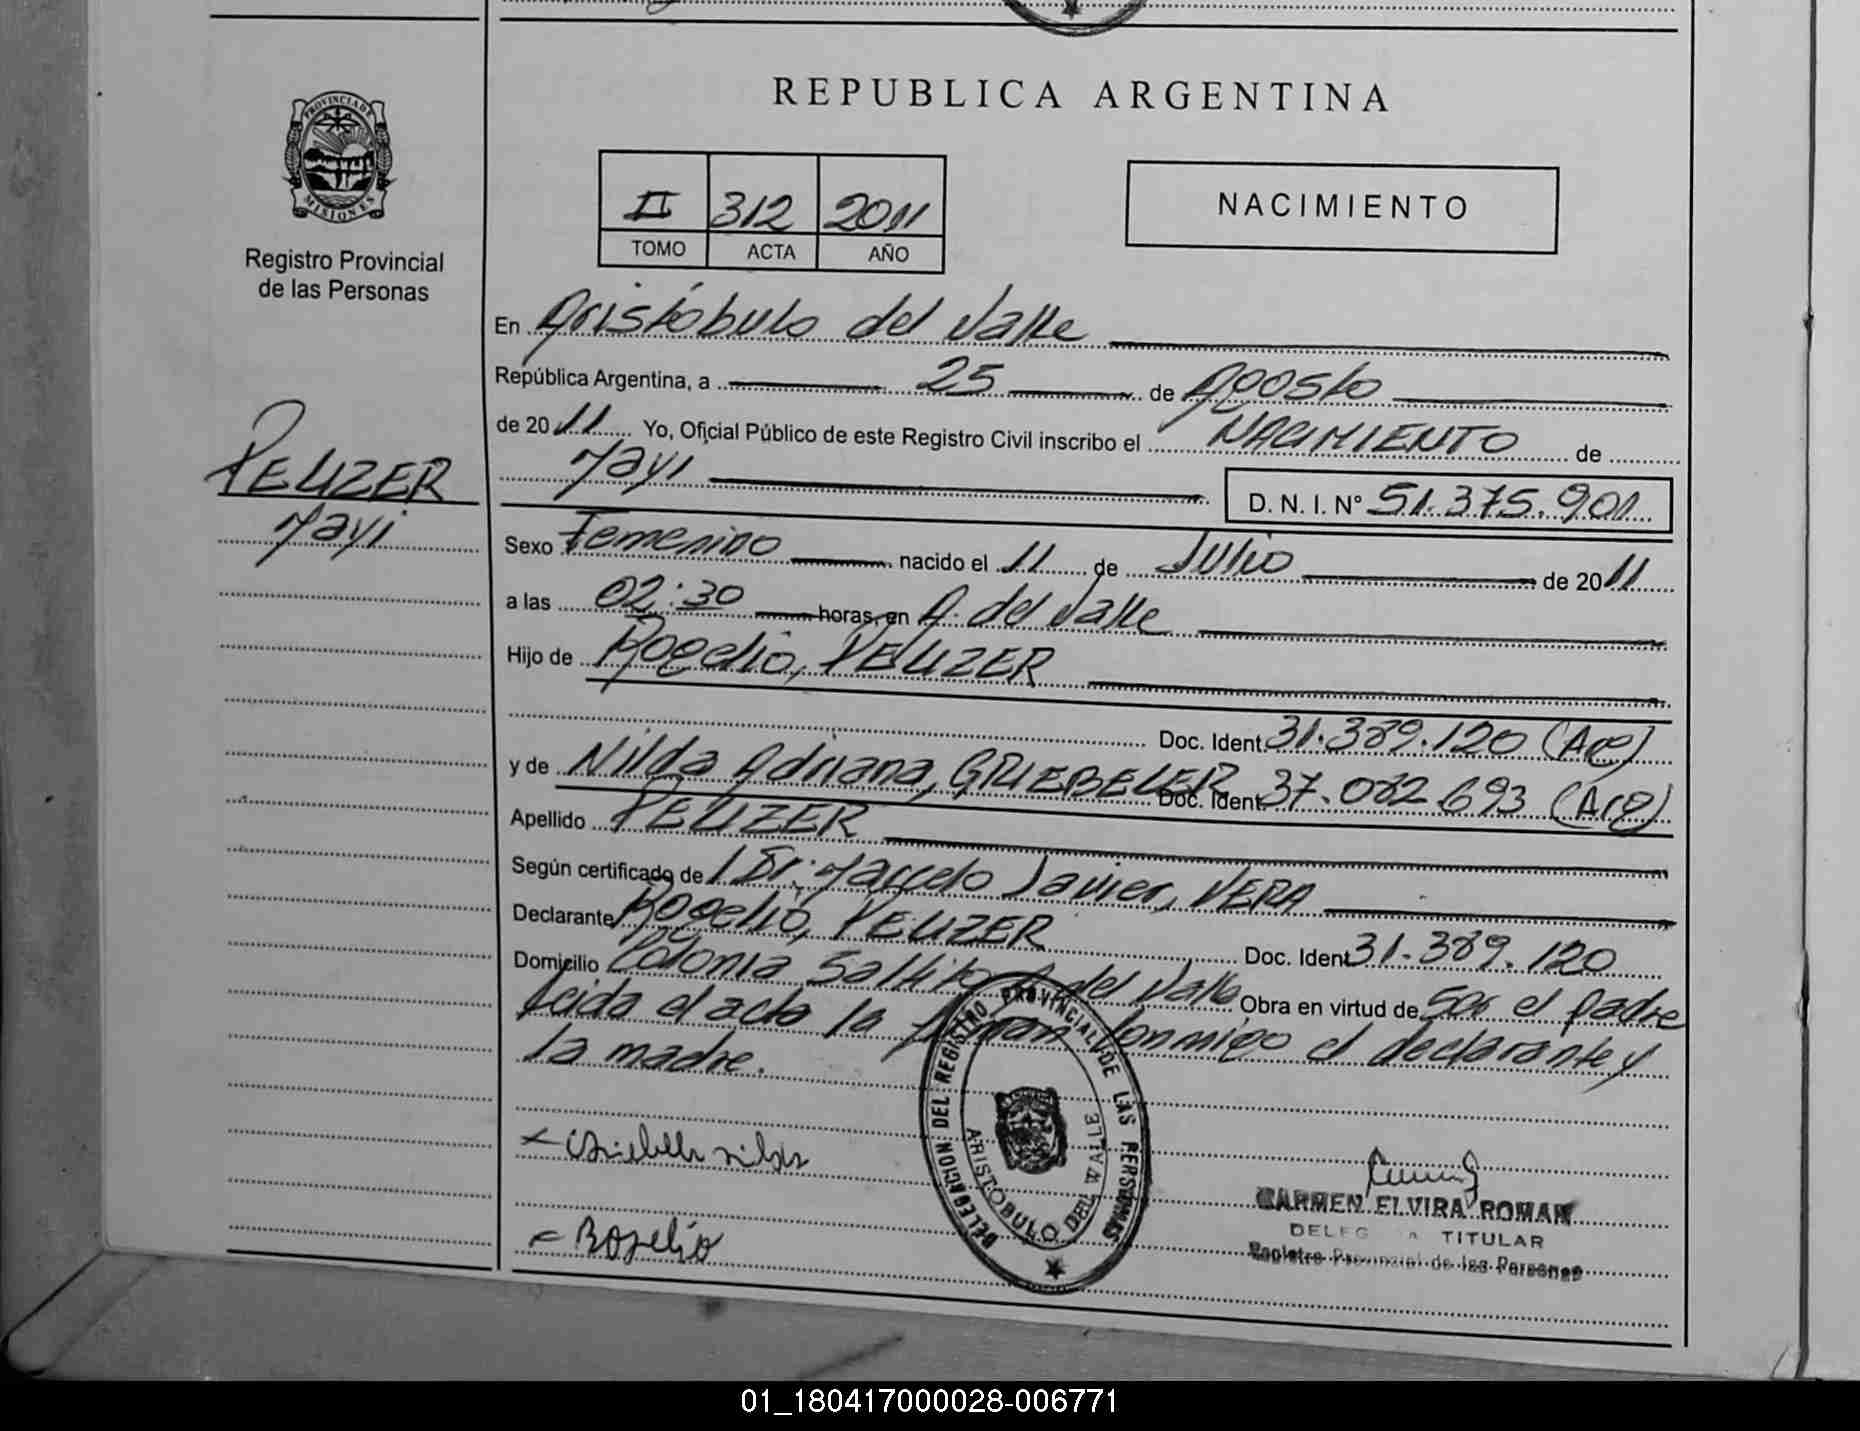 PROVINCIA DE
MISIONES
Registro Provincial
de las Personas
PELIZER
Mayi
REPUBLICA ARGENTINA
II 312 2011
TOMO ACTA AÑO
NACIMIENTO
En Aristóbulo del Valle
República Argentina, a 25 de Agosto
de 2011 Yo, Oficial Público de este Registro Civil inscribo el NACIMIENTO de
Mayi D. N. I. N° 51.375.901
Sexo Femenino nacido el 11 de Julio de 2011
a las 02:30 horas, en A. del Valle
Hijo de Rogelio, PELIZER
Doc. Ident. 31.389.120 (Arg)
y de Nilda Adriana, GRIEBELER Doc. Ident. 37.082.693 (Arg)
Apellido PELIZER
Según certificado de Dr. Marcelo Javier, VERA
Declarante Rogelio, PELIZER Doc. Ident. 31.389.120
Domicilio Colonia Saltito A. del Valle Obra en virtud de Ser el padre
Leida el acta la firman conmigo el declarante y
la madre.
DELEGACION DEL REGISTRO PROVINCIAL DE LAS PERSONAS
ARISTOBULO DEL VALLE
Rogelio
CARMEN ELVIRA ROMAN
TITULAR
Registro Provincial de las Personas
01_180417000028-006771